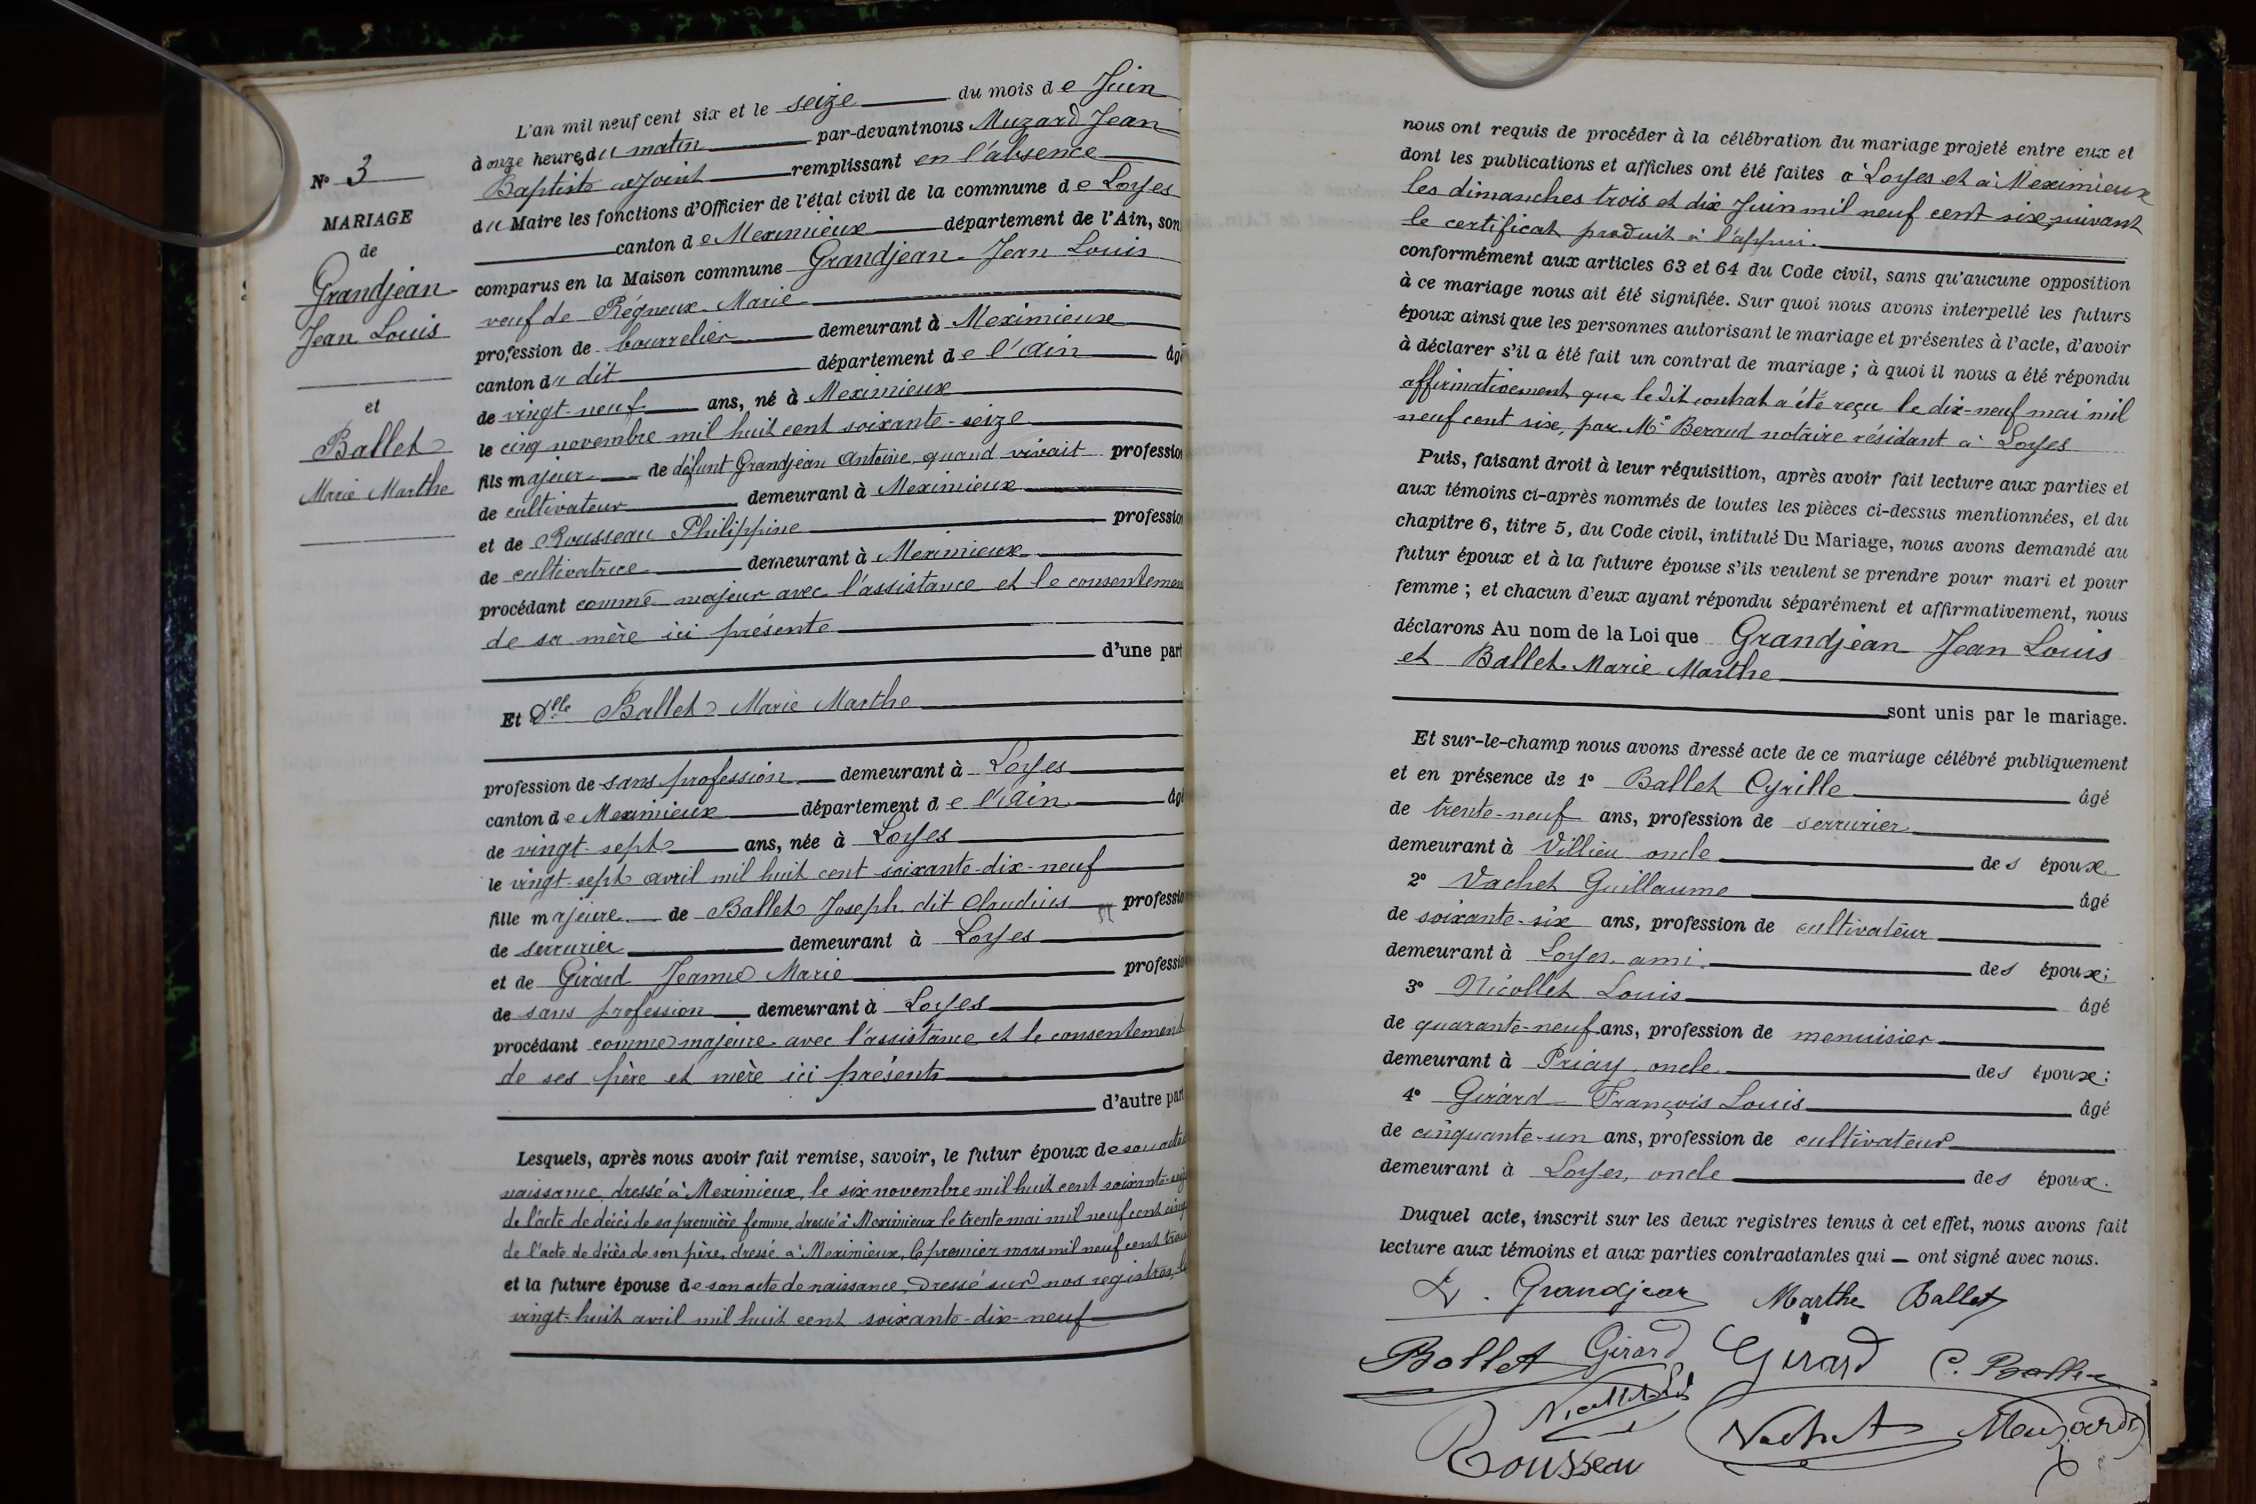 N° 3
MARIAGE
de
Grandjean
Jean Louis
et
Ballet
Marie Marthe
L'an mil neuf cent six et le seize du mois de Juin
à onze heures du matin par-devant nous Muzard Jean
Baptiste adjoint remplissant en l'absence
du Maire les fonctions d'Officier de l'état civil de la commune de Loyes
canton de Meximieux département de l'Ain, son
comparus en la Maison commune Grandjean Jean Louis
veuf de Régneux Marie
profession de bourrelier demeurant à Meximieux
canton du dit département de l'Ain âgé
de vingt-neuf ans, né à Meximieux
le cinq novembre mil huit cent soixante-seize
fils majeur de défunt Grandjean Antoine, quand vivait profession
de cultivateur demeurant à Meximieux
et de Rousseau Philippine profession
de cultivatrice demeurant à Meximieux
procédant comme majeur avec l'assistance et le consentement
de sa mère ici présente
d'une part
Et Dlle Ballet Marie Marthe
profession de sans profession demeurant à Loyes
canton de Meximieux département de l'Ain âgé
de vingt-sept ans, née à Loyes
le vingt-sept avril mil huit cent soixante-dix-neuf
fille majeure de Ballet Joseph dit Claudius profession
de serrurier demeurant à Loyes
et de Girard Jeanne Marie profession
de sans profession demeurant à Loyes
procédant comme majeure avec l'assistance et le consentement
de ses père et mère ici présents
d'autre part
Lesquels, après nous avoir fait remise, savoir, le futur époux de son acte
naissance, dressé à Meximieux, le six novembre mil huit cent soixante-seize
de l'acte de décès de sa première femme, dressé à Meximieux le trente mai mil neuf cent cinq
de l'acte de décès de son père, dressé à Meximieux, le premier mars mil neuf cent trois
et la future épouse de son acte de naissance, dressé sur nos registres, le
vingt-huit avril mil huit cent soixante-dix-neuf
nous ont requis de procéder à la célébration du mariage projeté entre eux et
dont les publications et affiches ont été faites à Loyes et à Meximieux
les dimanches trois et dix Juin mil neuf cent six, suivant
le certificat produit à l'appui.
conformément aux articles 63 et 64 du Code civil, sans qu'aucune opposition
à ce mariage nous ait été signifiée. Sur quoi nous avons interpellé les futurs
époux ainsi que les personnes autorisant le mariage et présentes à l'acte, d'avoir
à déclarer s'il a été fait un contrat de mariage ; à quoi il nous a été répondu
affirmativement que le dit contrat a été reçu le dix-neuf mai mil
neuf cent six, par Me Beraud notaire résidant à Loyes
Puis, faisant droit à leur réquisition, après avoir fait lecture aux parties et
aux témoins ci-après nommés de toutes les pièces ci-dessus mentionnées, et du
chapitre 6, titre 5, du Code civil, intitulé Du Mariage, nous avons demandé au
futur époux et à la future épouse s'ils veulent se prendre pour mari et pour
femme ; et chacun d'eux ayant répondu séparément et affirmativement, nous
déclarons Au nom de la Loi que Grandjean Jean Louis
et Ballet Marie Marthe
sont unis par le mariage.
Et sur-le-champ nous avons dressé acte de ce mariage célébré publiquement
et en présence de 1° Ballet Cyrille âgé
de trente-neuf ans, profession de serrurier
demeurant à Villieu oncle des époux
2° Vachet Guillaume âgé
de soixante-six ans, profession de cultivateur
demeurant à Loyes, ami des époux;
3° Nicollet Louis âgé
de quarante-neuf ans, profession de menuisier
demeurant à Priay, oncle des époux;
4° Girard François Louis âgé
de cinquante-un ans, profession de cultivateur
demeurant à Loyes, oncle des époux.
Duquel acte, inscrit sur les deux registres tenus à cet effet, nous avons fait
lecture aux témoins et aux parties contractantes qui — ont signé avec nous.
L. Grandjean Marthe Ballet
Ballet Girard Girard C. Ballet
Nicollet Ls
Rousseau Vachet Muzard